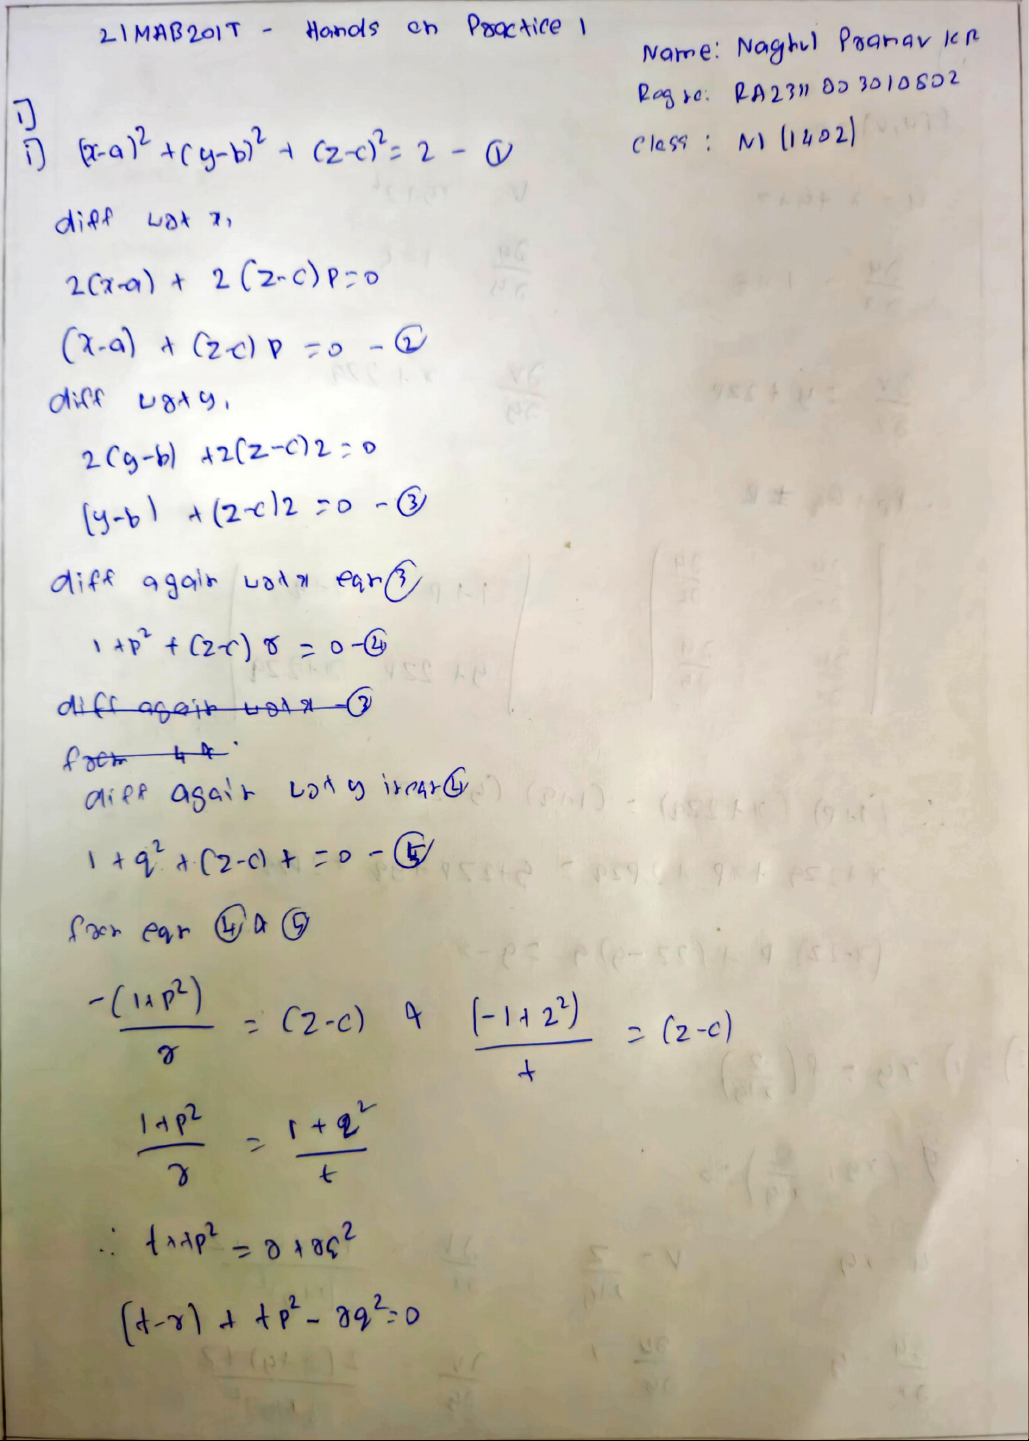 21MAB201T - Hands on Practice 1
Name: Naghul Pranav KR
Reg no: RA2311003010802
Class: N1 (1402)
1)
i) (x-a)² + (y-b)² + (z-c)² = 2 - ①
diff wrt x,
2(x-a) + 2(z-c)p = 0
(x-a) + (z-c) p = 0 - ②
diff wrt y,
2(y-b) + 2(z-c)2 = 0
(y-b) + (z-c)2 = 0 - ③
diff again wrt x eqn ③
1+p² + (z-c) r = 0 - ④
diff again wrt x - ③
from 4 &
diff again wrt y in eqn ④
1 + q² + (z-c) t = 0 - ⑤
from eqn ④ & ⑤
-(1+p²)/r = (z-c) & (-1+2²)/t = (z-c)
1+p²/r = 1+q²/t
∴ t+tp² = r+rq²
(t-r) + tp² - rq² = 0